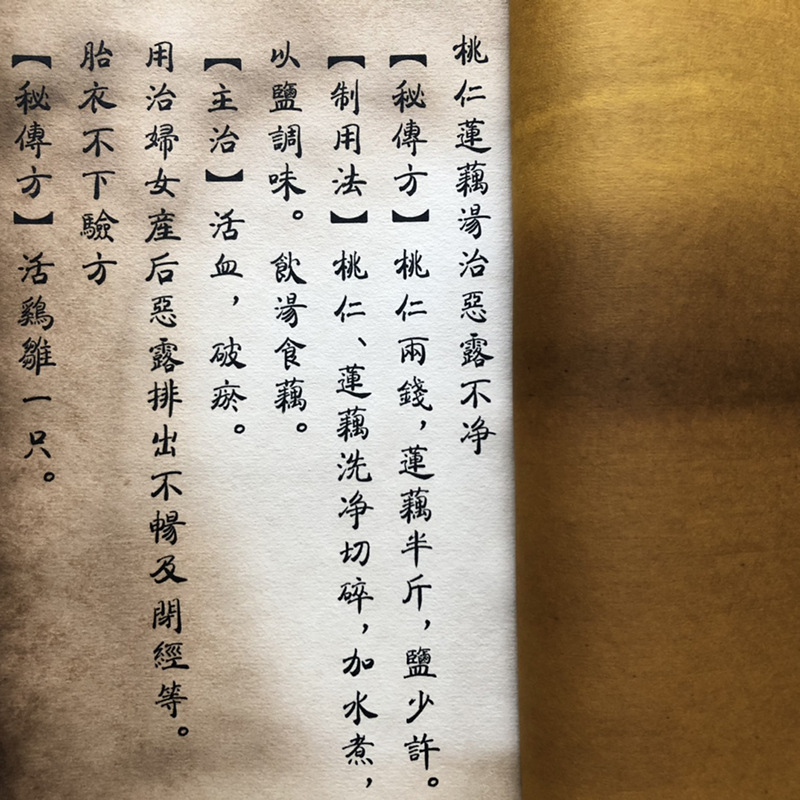 桃仁蓮藕湯治惡露不净
【秘傳方】桃仁兩錢，蓮藕半斤，鹽少許。
【制用法】桃仁、蓮藕洗净切碎，加水煮，
以鹽調味。飲湯食藕。
【主治】活血，破瘀。
用治婦女産后惡露排出不暢及閉經等。
胎衣不下驗方
【秘傳方】活鷄雛一只。